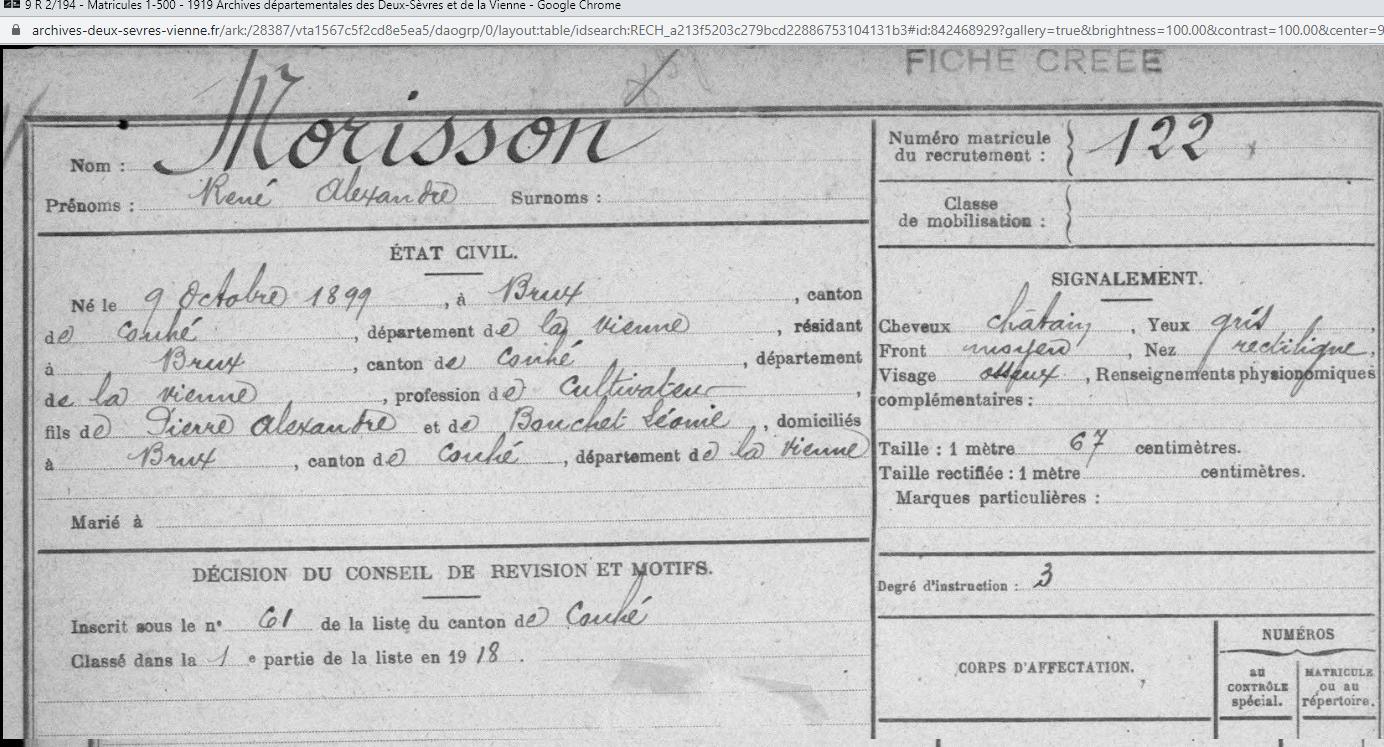 9 R 2/194 - Matricules 1-500 - 1919 Archives départementales des Deux-Sèvres et de la Vienne - Google Chrome
archives-deux-sevres-vienne.fr/ark:/28387/vta1567c5f2cd8e5ea5/daogrp/0/layout:table/idsearch:RECH_a213f5203c279bcd22886753104131b3#id:842468929?gallery=true&brightness=100.00&contrast=100.00&center=9
FICHE CREEE
Nom : Morisson
Prénoms : René Alexandre Surnoms :
ÉTAT CIVIL.
Né le 9 Octobre 1899, à Brux, canton
de Couhé, département de la Vienne, résidant
à Brux, canton de Couhé, département
de la Vienne, profession de Cultivateur,
fils de Pierre Alexandre et de Bouchet Léonie, domiciliés
à Brux, canton de Couhé, département de la Vienne
Marié à
DÉCISION DU CONSEIL DE REVISION ET MOTIFS.
Inscrit sous le n° 61 de la liste du canton de Couhé
Classé dans la 1e partie de la liste en 1918.
Numéro matricule
du recrutement : 122
Classe
de mobilisation :
SIGNALEMENT.
Cheveux châtain, Yeux gris,
Front moyen, Nez rectiligne,
Visage osseux, Renseignements physionomiques
complémentaires :
Taille : 1 mètre 67 centimètres.
Taille rectifiée : 1 mètre centimètres.
Marques particulières :
Degré d'instruction : 3
CORPS D'AFFECTATION.
NUMÉROS
au
CONTRÔLE
spécial.
MATRICULE
ou au
répertoire.